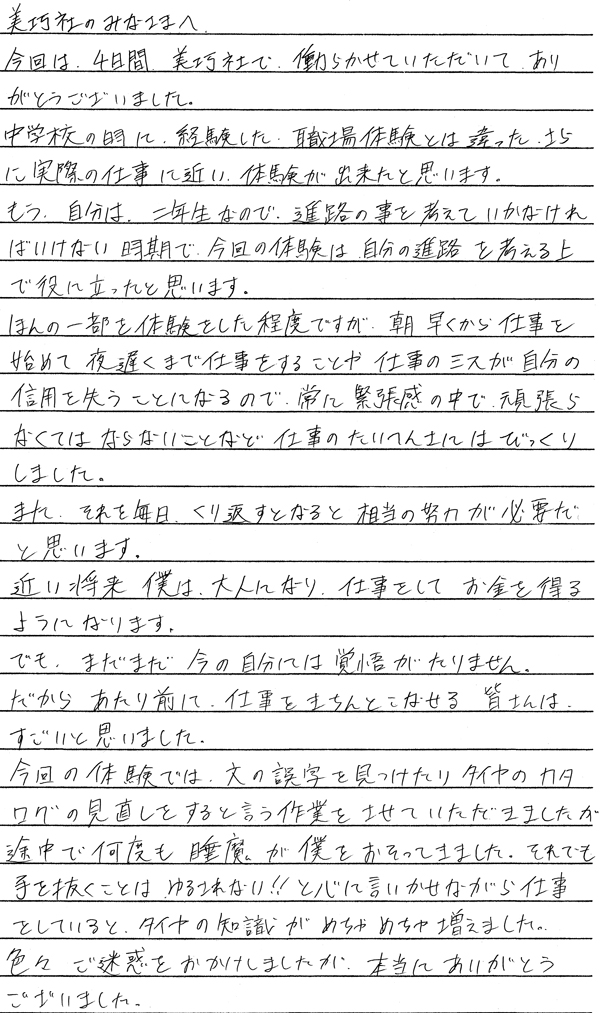 美巧社のみなさまへ
今回は、4日間 美巧社で、働らかせていただいて あり
がとうございました。
中学校の時に、経験した、職場体験とは違った、さら
に実際の仕事に近い、体験が出来たと思います。
もう、自分は、二年生なので、進路の事を考えていかなけれ
ばいけない時期で、今回の体験は 自分の進路を考える上
で役に立ったと思います。
ほんの一部を体験をした程度ですが、朝早くから仕事を
始めて 夜遅くまで仕事をすることや 仕事のミスが自分の
信用を失うことになるので、常に緊張感の中で、頑張ら
なくてはならないことなど 仕事のたいへんさにはびっくり
しました。
また、それを毎日、くり返すとなると 相当の努力が必要だ
と思います。
近い将来 僕は、大人になり、仕事をして お金を得る
ようになります。
でも、まだまだ 今の自分には覚悟がたりません。
だから あたり前に、仕事をきちんとこなせる 皆さんは、
すごいと思いました。
今回の体験では、文の誤字を見つけたり タイヤのカタ
ログの見直しをすると言う作業をさせていただきましたが
途中で何度も 睡魔。が僕をおそってきました。それでも
手を抜くことは ゆるされない!!と心に言いかせながら仕事
をしていると、タイヤの知識が めちゃめちゃ増えました。
色々 ご迷惑をおかけしましたが、本当にありがとう
ございました。